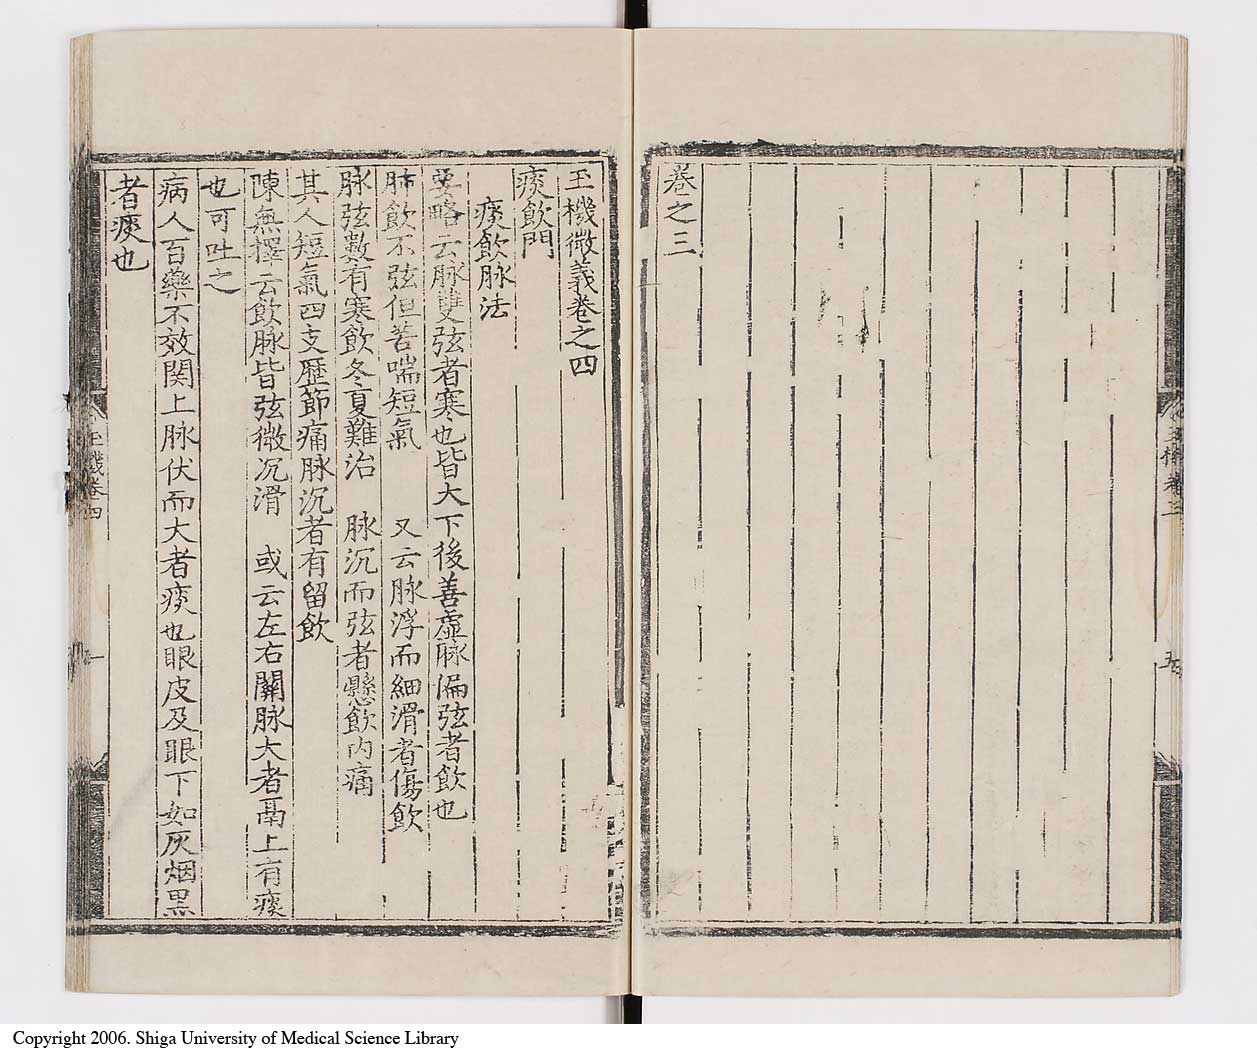 卷之三
玉機卷三
五
玉機微義卷之四
痰飲門
痰飲脉法
要略云脉雙弦者寒也皆大下後善虛脉偏弦者飲也
肺飲不弦但苦喘短氣 又云脉浮而細滑者傷飲
脉弦數有寒飲冬夏難治 脉沉而弦者懸飲內痛
其人短氣四支歷節痛脉沉者有留飲
陳無擇云飲脉皆弦微沉滑 或云左右關脉大者鬲上有痰
也可吐之
病人百藥不效関上脉伏而大者痰也眼皮及眼下如灰烟黑
者痰也
玉機卷四
一
Copyright 2006. Shiga University of Medical Science Library